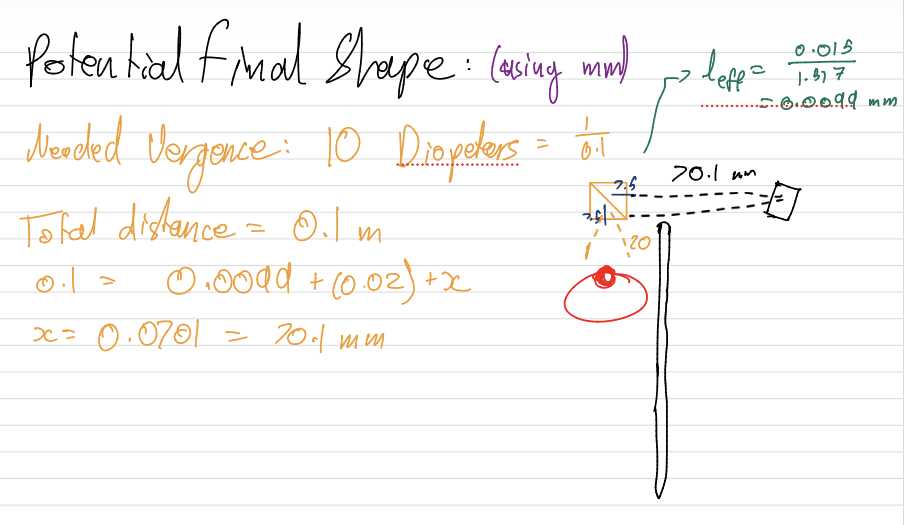 Potential Final Shape: (using mm)
l_eff = 0.015 / 1.517
= 0.0099 mm
Needed Vergence: 10 Diopeters = 1 / 0.1
70.1 mm
7.5
7.5
20
Total distance = 0.1 m
0.1 = 0.0099 + (0.02) + x
x = 0.0701 = 70.1 mm